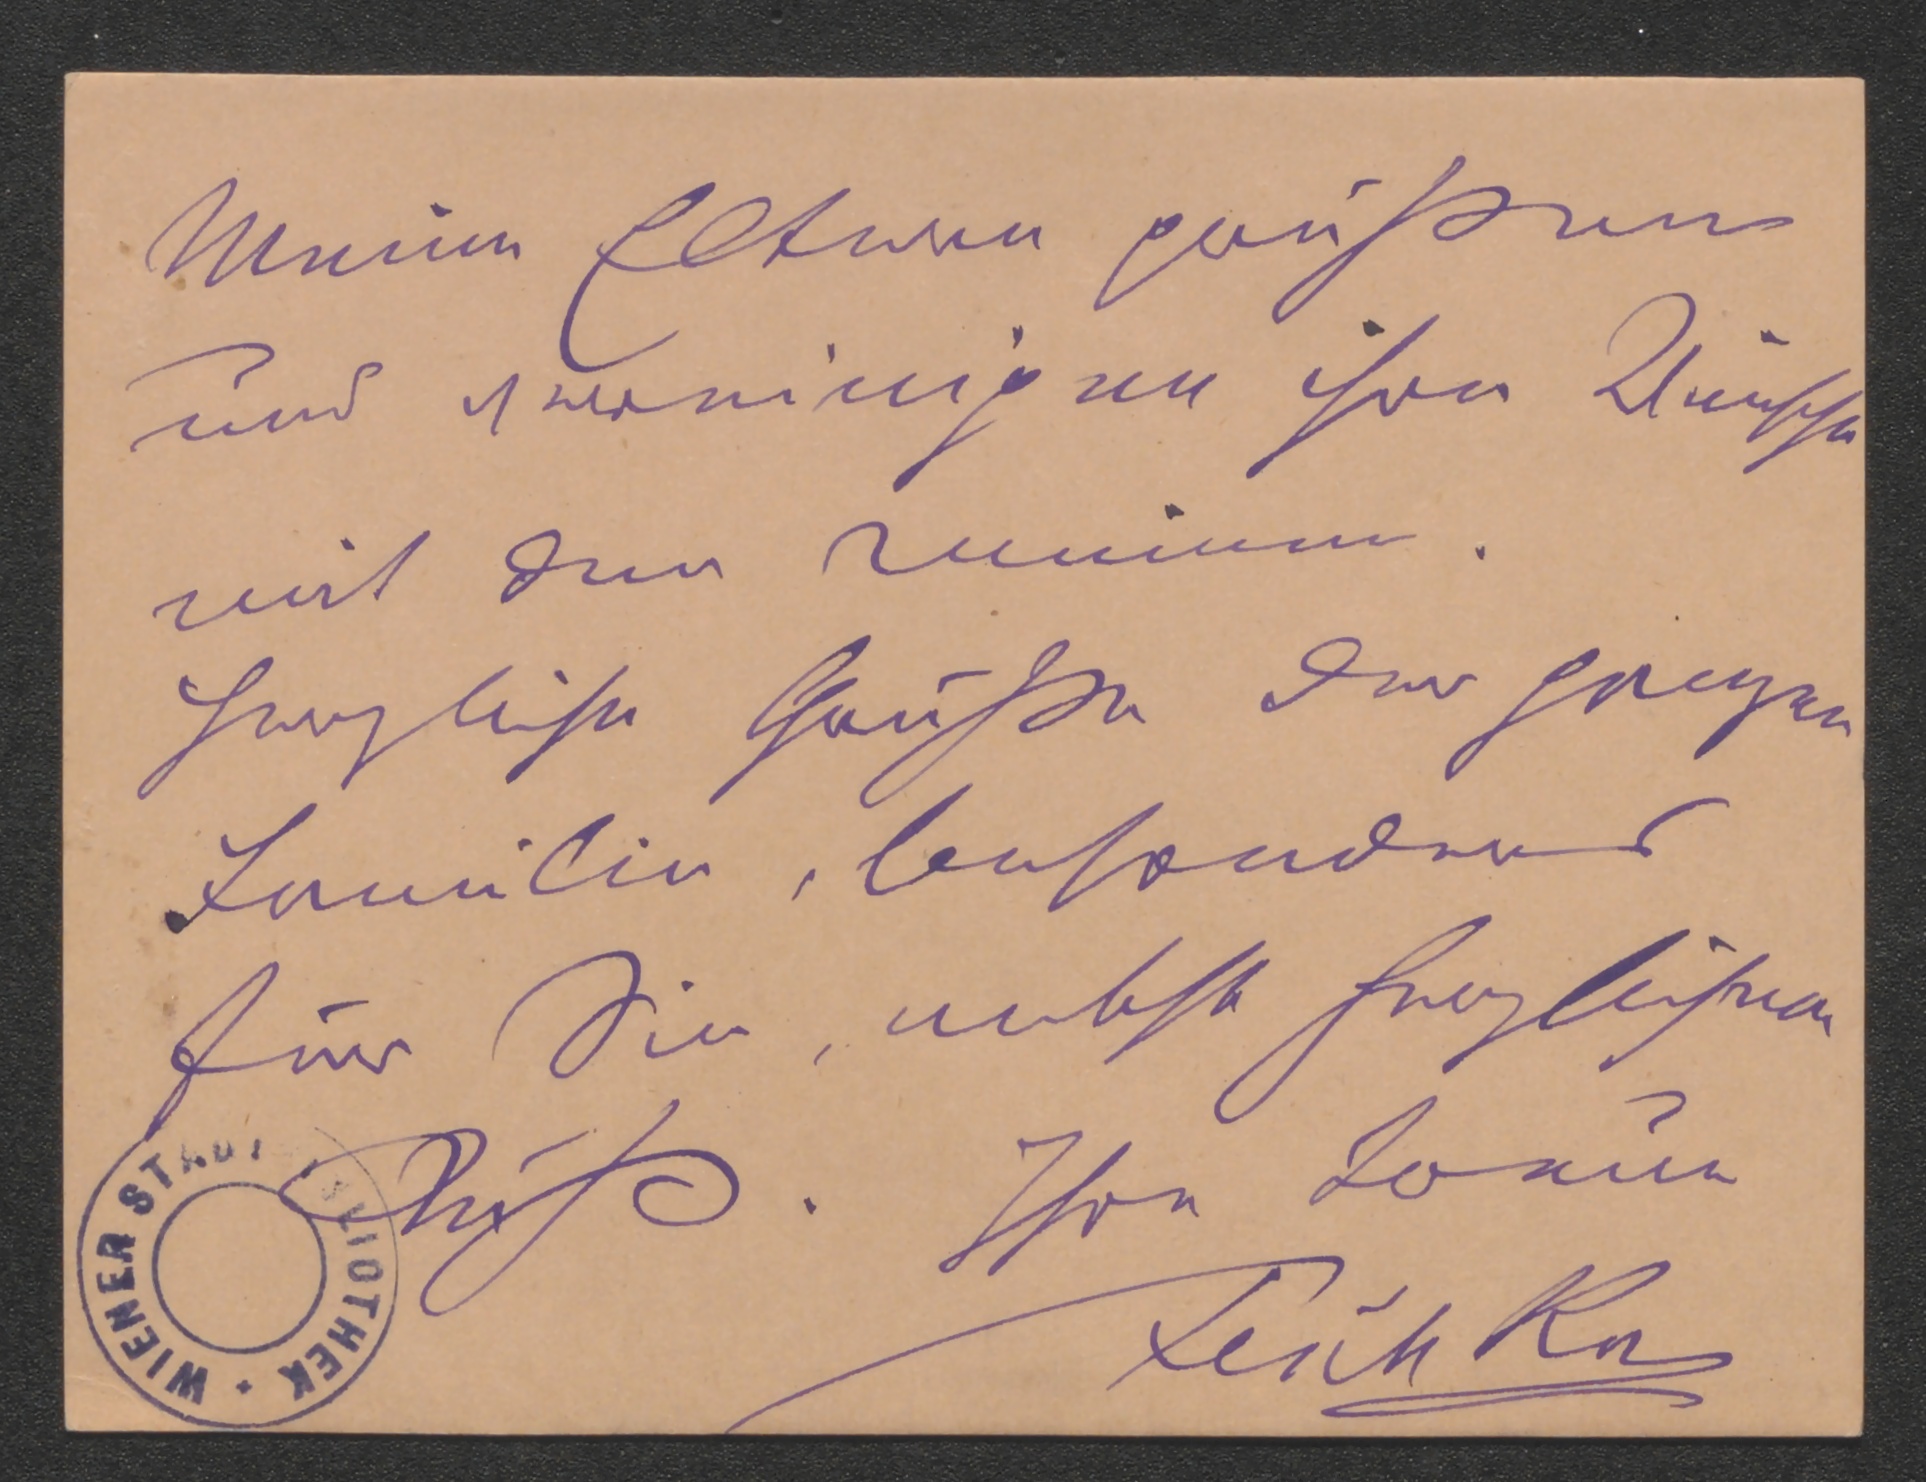 Meine Eltern grüßen
und vereinigen ihre Wünsche
mit den meinen.
Herzliche Grüße der ganzen
Familie, besonders
für Sie, nebst herzlichen
Kuß. Ihre treue
WIENER STADTBIBLIOTHEK